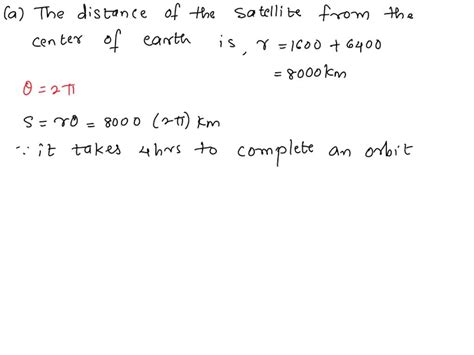 (a) The distance of the satellite from the
center of earth is, r = 1600 + 6400
= 8000 km
θ = 2π
S = rθ = 8000 (2π) km
∵ it takes 4hrs to complete an orbit